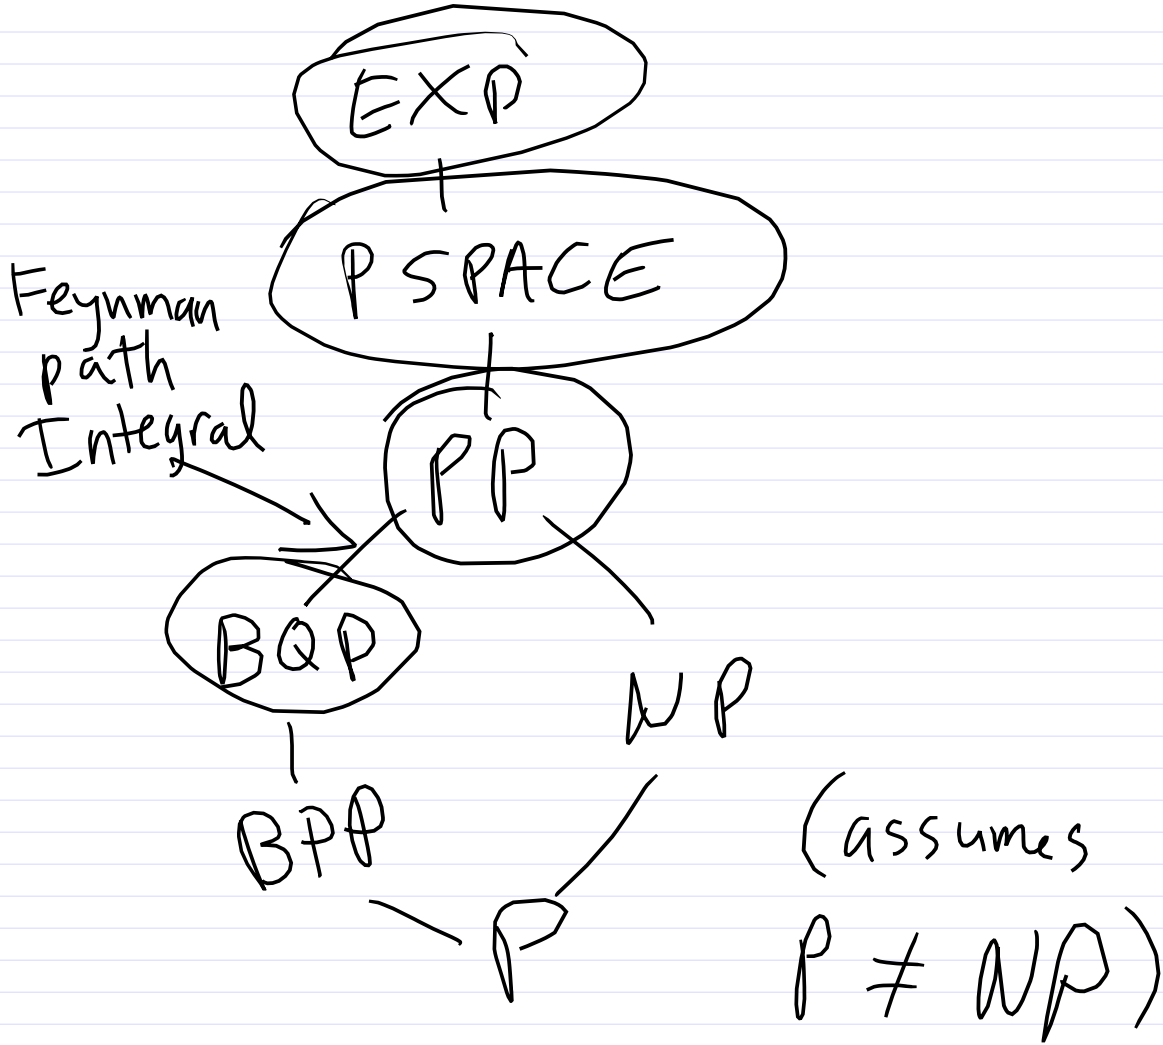 EXP
PSPACE
Feynman
path
Integral
PP
BQP
NP
BPP
P
(assumes
P ≠ NP)